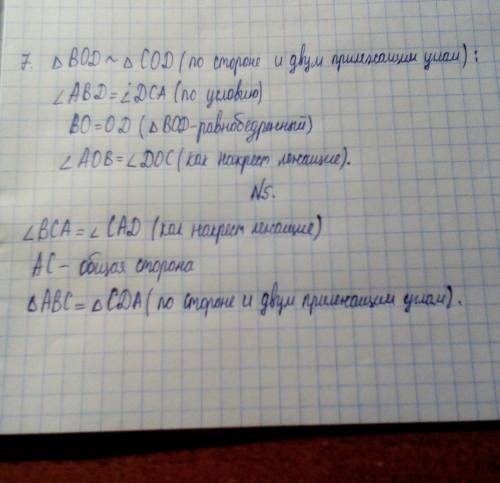 7. △BOD ~ △COD (по стороне и двум прилежащим углам):
∠ABD = ∠DCA (по условию)
BO = OD (△BOD - равнобедренный)
∠AOB = ∠DOC (как накрест лежащие).
N5.
∠BCA = ∠CAD (как накрест лежащие)
AC - общая сторона
△ABC = △CDA (по стороне и двум прилежащим углам).